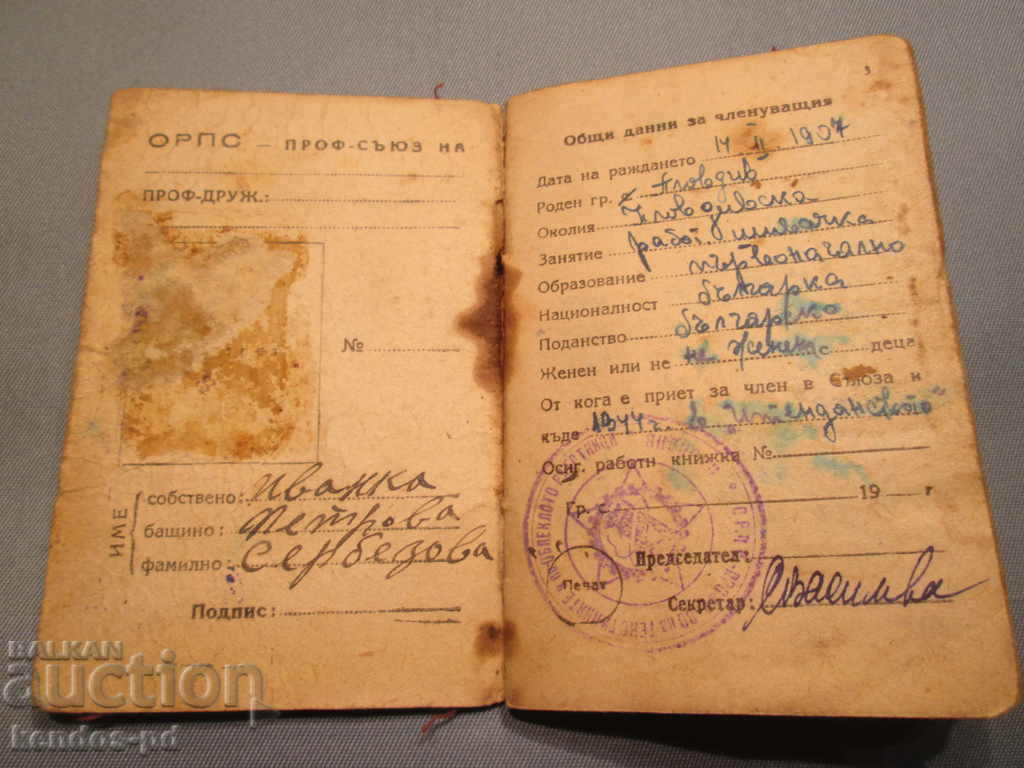 ОРПС — ПРОФ-СЪЮЗ НА
ПРОФ-ДРУЖ.:
№
ИМЕ
собствено: Иванка
бащино: Петрова
фамилно: Сербезова
Подпис:
3
Общи данни за членуващия
Дата на раждането 14 II 1907
Роден гр. Пловдив
Околия Пловдивска
Занятие работ. шивачка
Образование първоначално
Националност българка
Поданство българско
Женен или не не женен с деца
От кога е приет за член в Съюза и
къде 1944 г. в „
Осиг. работн книжка №
Гр. с. 19 г
Председател
Печат
Секретар:
BALKAN
auction
kendos-pd